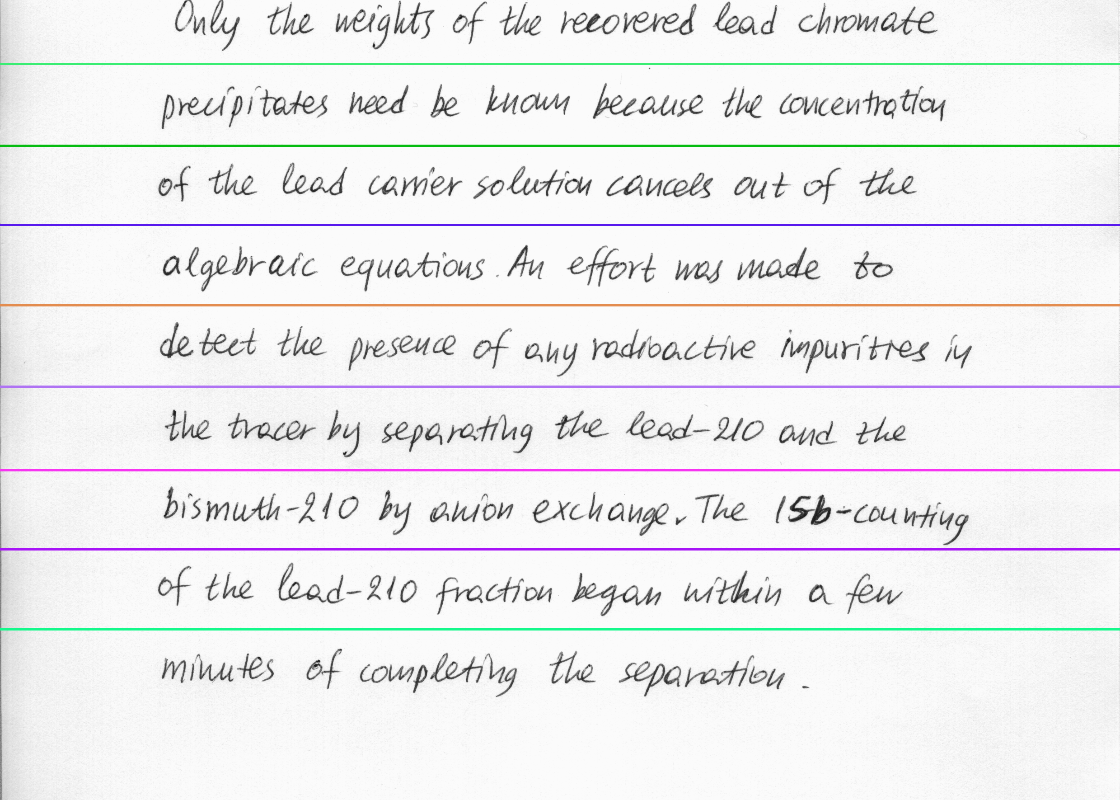 Only the weights of the recovered lead chromate
precipitates need be known because the concentration
of the lead carrier solution cancels out of the
algebraic equations. An effort was made to
detect the presence of any radioactive impurities in
the tracer by separating the lead-210 and the
bismuth-210 by anion exchange. The 15b-counting
of the lead-210 fraction began within a few
minutes of completing the separation.